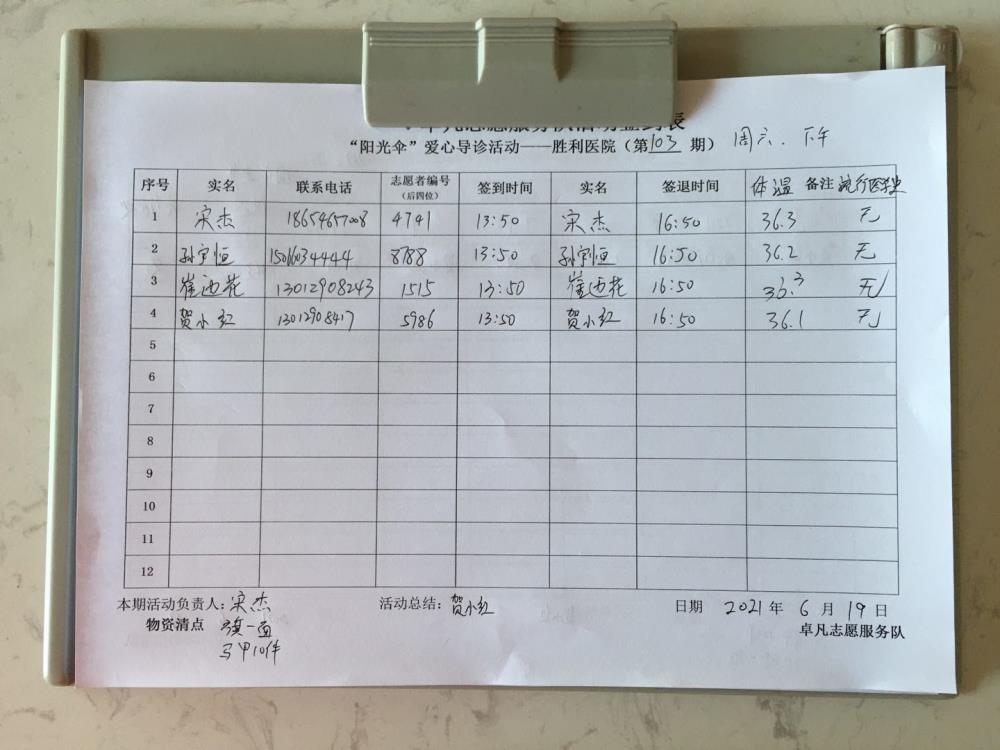 卓凡志愿服务队活动签到表
“阳光伞”爱心导诊活动——胜利医院（第103期） 周六. 下午
序号 实名 联系电话 志愿者编号（后四位） 签到时间 实名 签退时间 体温 备注 流行医学史
1 宋杰 18654657008 4741 13:50 宋杰 16:50 36.3 无
2 孙宇恒 15016034444 8788 13:50 孙宇恒 16:50 36.2 无
3 崔西花 13012908243 1515 13:50 崔西花 16:50 36.3 无
4 贺小红 13012908417 5986 13:50 贺小红 16:50 36.1 无
5
6
7
8
9
10
11
12
本期活动负责人：宋杰 活动总结：贺小红 日期 2021年6月19日
物资清点 旗一面 卓凡志愿服务队
马甲10件